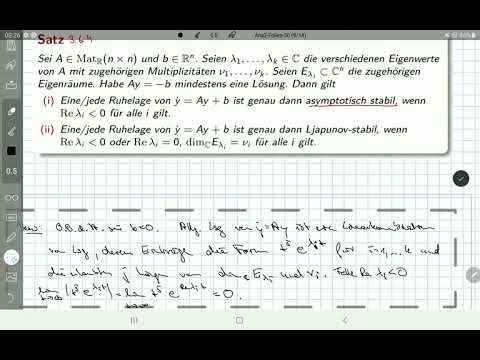 08:26
Ana2-Folien-30 (9/14)
Satz 3.6.4
Sei A ∈ Mat_ℝ(n × n) und b ∈ ℝⁿ. Seien λ₁, . . . , λₖ ∈ ℂ die verschiedenen Eigenwerte
von A mit zugehörigen Multiplizitäten ν₁, . . . , νₖ. Seien E_λᵢ ⊂ ℂⁿ die zugehörigen
Eigenräume. Habe Ay = −b mindestens eine Lösung. Dann gilt
(i) Eine/jede Ruhelage von ẏ = Ay + b ist genau dann asymptotisch stabil, wenn
Re λᵢ < 0 für alle i gilt.
(ii) Eine/jede Ruhelage von ẏ = Ay + b ist genau dann Ljapunov-stabil, wenn
Re λᵢ < 0 oder Re λᵢ = 0, dim_ℂ E_λᵢ = νᵢ für alle i gilt.
0.5
O.B.d.A. sei b=0. Allg. Lsg von ẏ=Ay ist eine Linearkombination
von Lsg, deren Einträge die Form t^j e^{λᵢt} für i=1,...,k und
die j hängen von dim_ℂ E_λᵢ und νᵢ. Falls Re λᵢ<0
lim |t^j e^{λᵢt}| = lim t^j e^{Re λᵢ t} = 0.
0.5